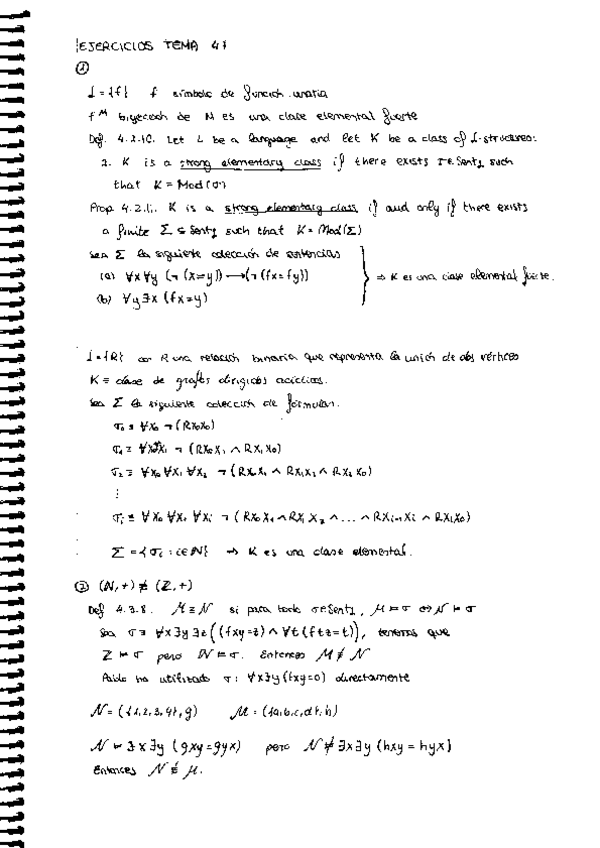 EJERCICIOS TEMA 4
①
L={f} f símbolo de función unaria
f^M biyección de M es una clase elemental fuerte
Def. 4.2.10. Let L be a language and let K be a class of L-structures:
2. K is a strong elementary class if there exists σ∈Sent_L such
that K = Mod(σ)
Prop 4.2.11. K is a strong elementary class if and only if there exists
a finite Σ ⊆ Sent_L such that K = Mod(Σ)
Sea Σ la siguiente colección de sentencias
(a) ∀x∀y (¬(x=y)) ⟶ (¬(fx=fy)) ⇒ K es una clase elemental fuerte.
(b) ∀y∃x (fx=y)
L={R} con R una relación binaria que representa la unión de dos vértices
K ≡ clase de grafos dirigidos acíclicos.
Sea Σ la siguiente colección de fórmulas.
σ₀ ≡ ∀x₀ ¬(Rx₀x₀)
σ₁ ≡ ∀x₀∀x₁ ¬(Rx₀x₁ ∧ Rx₁x₀)
σ₂ ≡ ∀x₀∀x₁∀x₂ ¬(Rx₀x₁ ∧ Rx₁x₂ ∧ Rx₂x₀)
⋮
σᵢ ≡ ∀x₀∀x₁∀xᵢ ¬(Rx₀x₁ ∧ Rx₁x₂ ∧ ... ∧ Rxᵢ₋₁xᵢ ∧ Rxᵢx₀)
Σ = {σᵢ : i∈N} → K es una clase elemental.
② (N,+) ≢ (Z,+)
Def 4.3.8. M ≡ N si para toda σ∈Sent_L, M ⊨ σ ⇔ N ⊨ σ
Sea σ ≡ ∀x∃y∃z((fxy=z) ∧ ∀t(ftz=t)), tenemos que
Z ⊨ σ pero N ⊭ σ. Entonces M ≢ N
ha utilizado σ: ∀x∃y(fxy=0) directamente
N = ({1,2,3,4}, g) M = ({a,b,c,d}, h)
N ⊨ ∃x∃y (gxy=gyx) pero N ⊭ ∃x∃y (hxy=hyx)
Entonces N ≢ M.